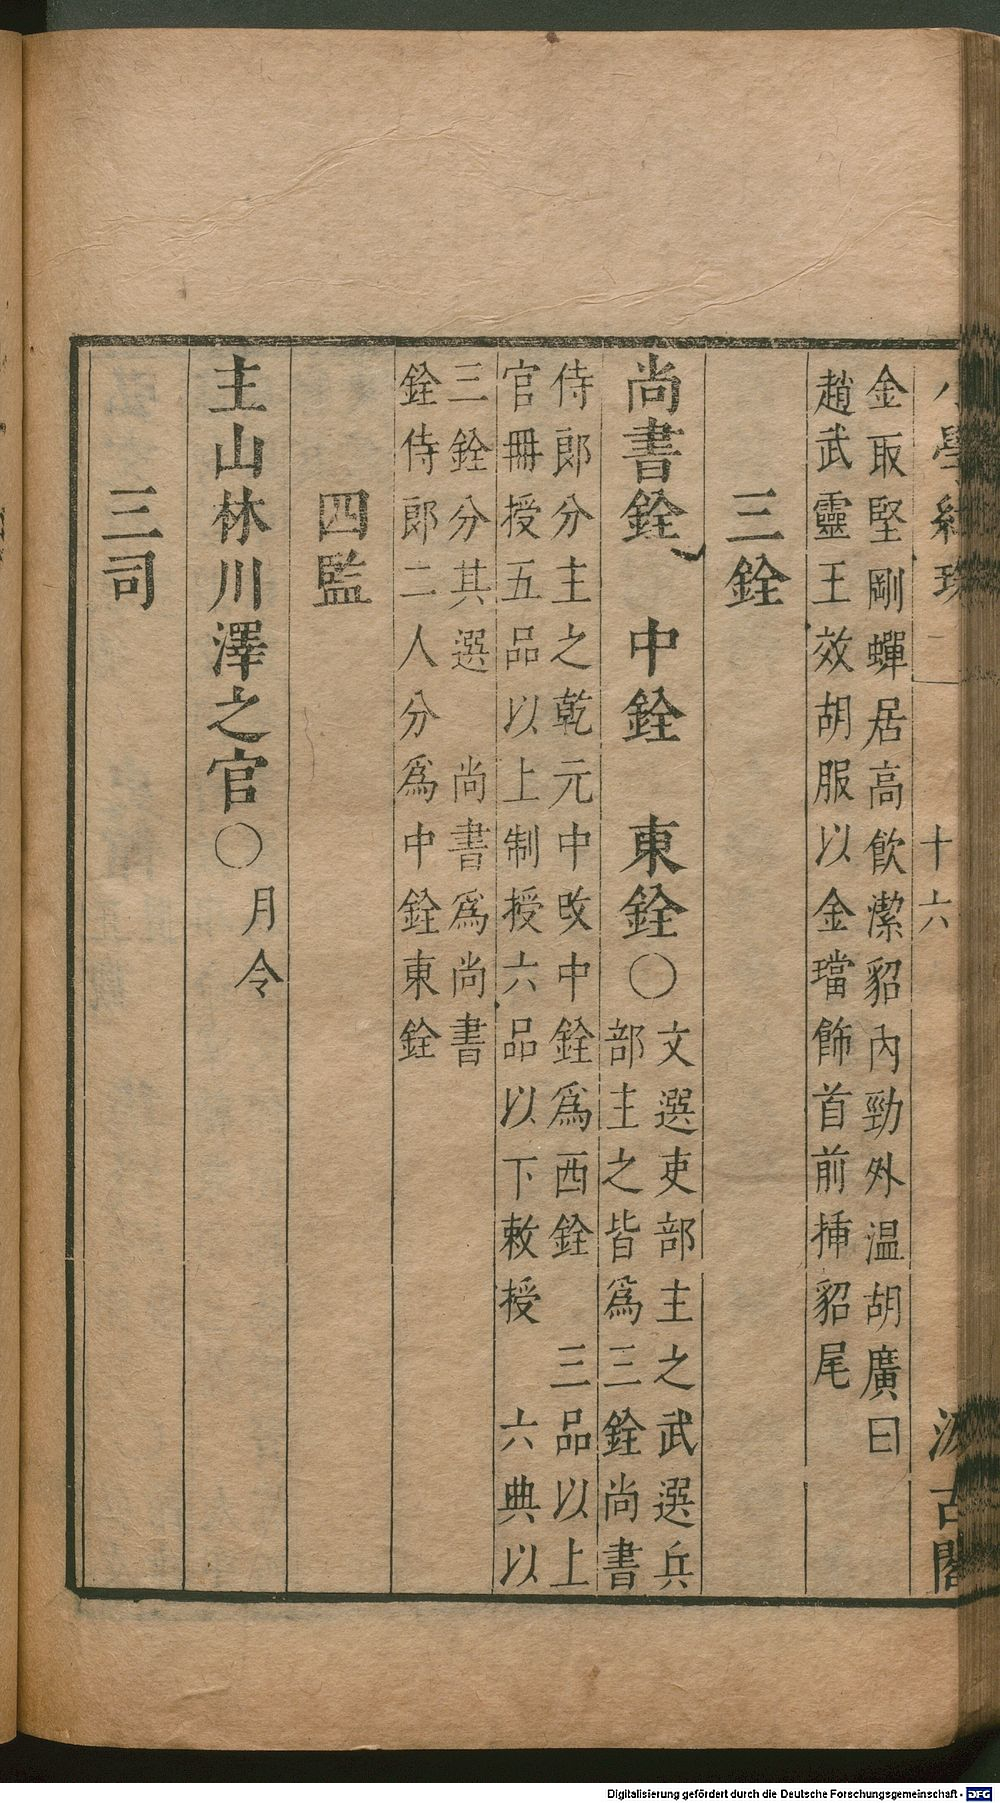 小學紺珠 十六 汲古閣
金取堅剛蟬居高飲潔貂內勁外温胡廣曰
趙武靈王效胡服以金璫飾首前揷貂尾
三銓
尚書銓 中銓 東銓〇
文選吏部主之武選兵
部主之皆爲三銓尚書
侍郎分主之乾元中改中銓爲西銓 三品以上
官冊授五品以上制授六品以下敕授 六典以
三銓分其選 尚書爲尚書
銓侍郎二人分爲中銓東銓
四監
主山林川澤之官〇月令
三司
Digitalisierung gefördert durch die Deutsche Forschungsgemeinschaft - DFG